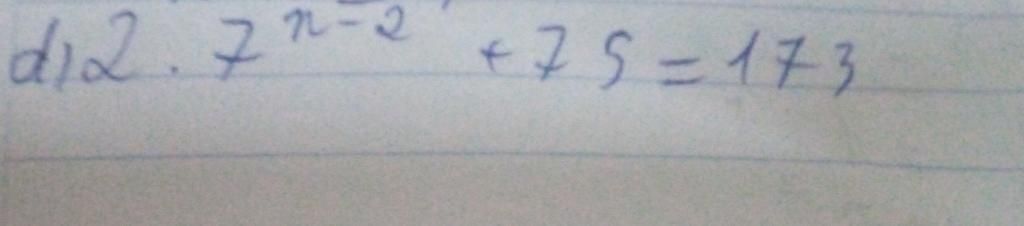 d) 2 . 7^{n-2} + 75 = 173